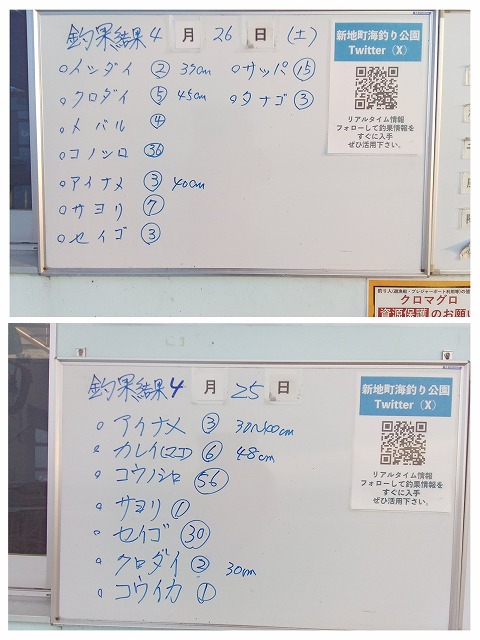 釣果結果 4 月 26 日 (土)
○イシダイ ② 35cm ○サッパ ⑮
○クロダイ ⑤ 45cm ○タナゴ ③
○メバル ④
○コノシロ ㊱
○アイナメ ③ 40cm
○サヨリ ⑦
○セイゴ ③
新地町海釣り公園
Twitter（X）
リアルタイム情報
フォローして釣果情報を
すぐに入手
ぜひ活用下さい。
クロマグロ
資源保護のお願い
釣果結果 4 月 25 日
○アイナメ ③ 30〜40cm
○カレイ ⑥ 48cm
○コウノシロ 56
○サヨリ ①
○セイゴ ㉚
○クロダイ ② 30cm
○コウイカ ①
新地町海釣り公園
Twitter（X）
リアルタイム情報
フォローして釣果情報を
すぐに入手
ぜひ活用下さい。